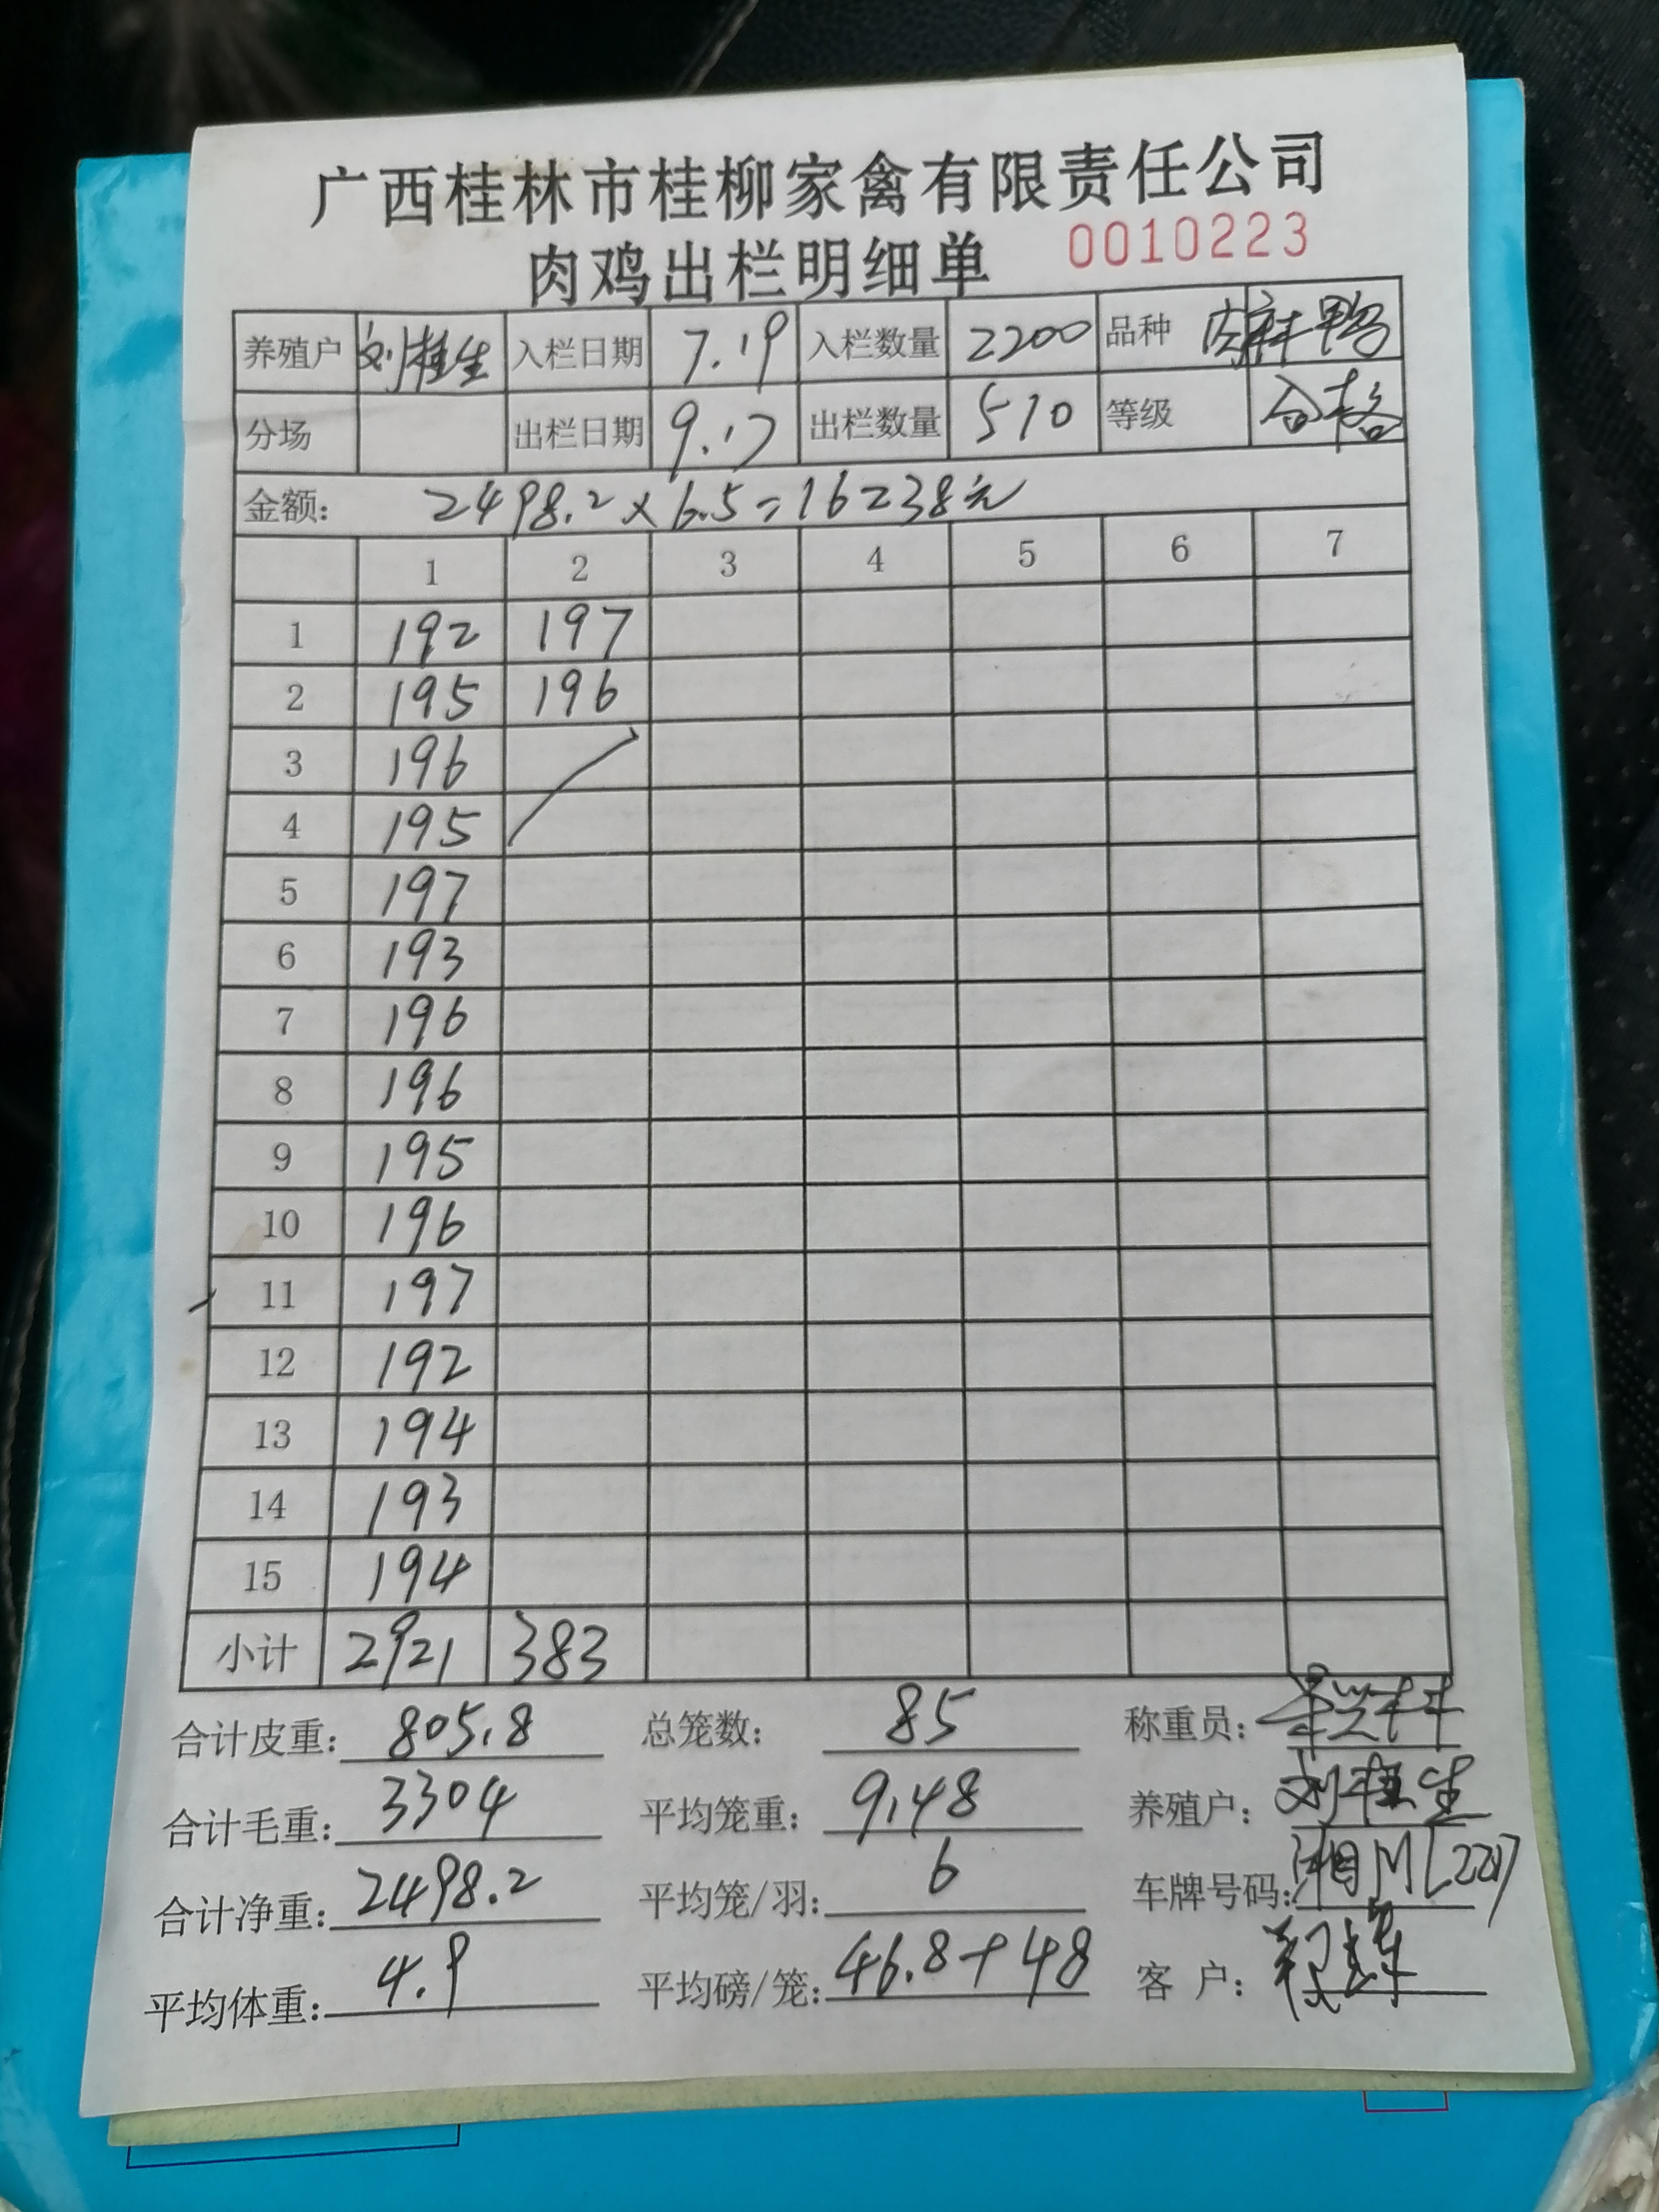 广西桂林市桂柳家禽有限责任公司
肉鸡出栏明细单 0010223
养殖户 刘桂生 入栏日期 7.19 入栏数量 2200 品种 肉麻鸭
分场 出栏日期 9.17 出栏数量 510 等级 合格
金额: 2498.2×6.5=16238元
1 2 3 4 5 6 7
1 192 197
2 195 196
3 196
4 195
5 197
6 193
7 196
8 196
9 195
10 196
11 197
12 192
13 194
14 193
15 194
小计 2921 383
合计皮重: 805.8 总笼数: 85 称重员:
合计毛重: 3304 平均笼重: 9.48 养殖户: 刘桂生
合计净重: 2498.2 平均笼/羽: 6 车牌号码:
平均体重: 4.9 平均磅/笼: 46.8+48 客户: